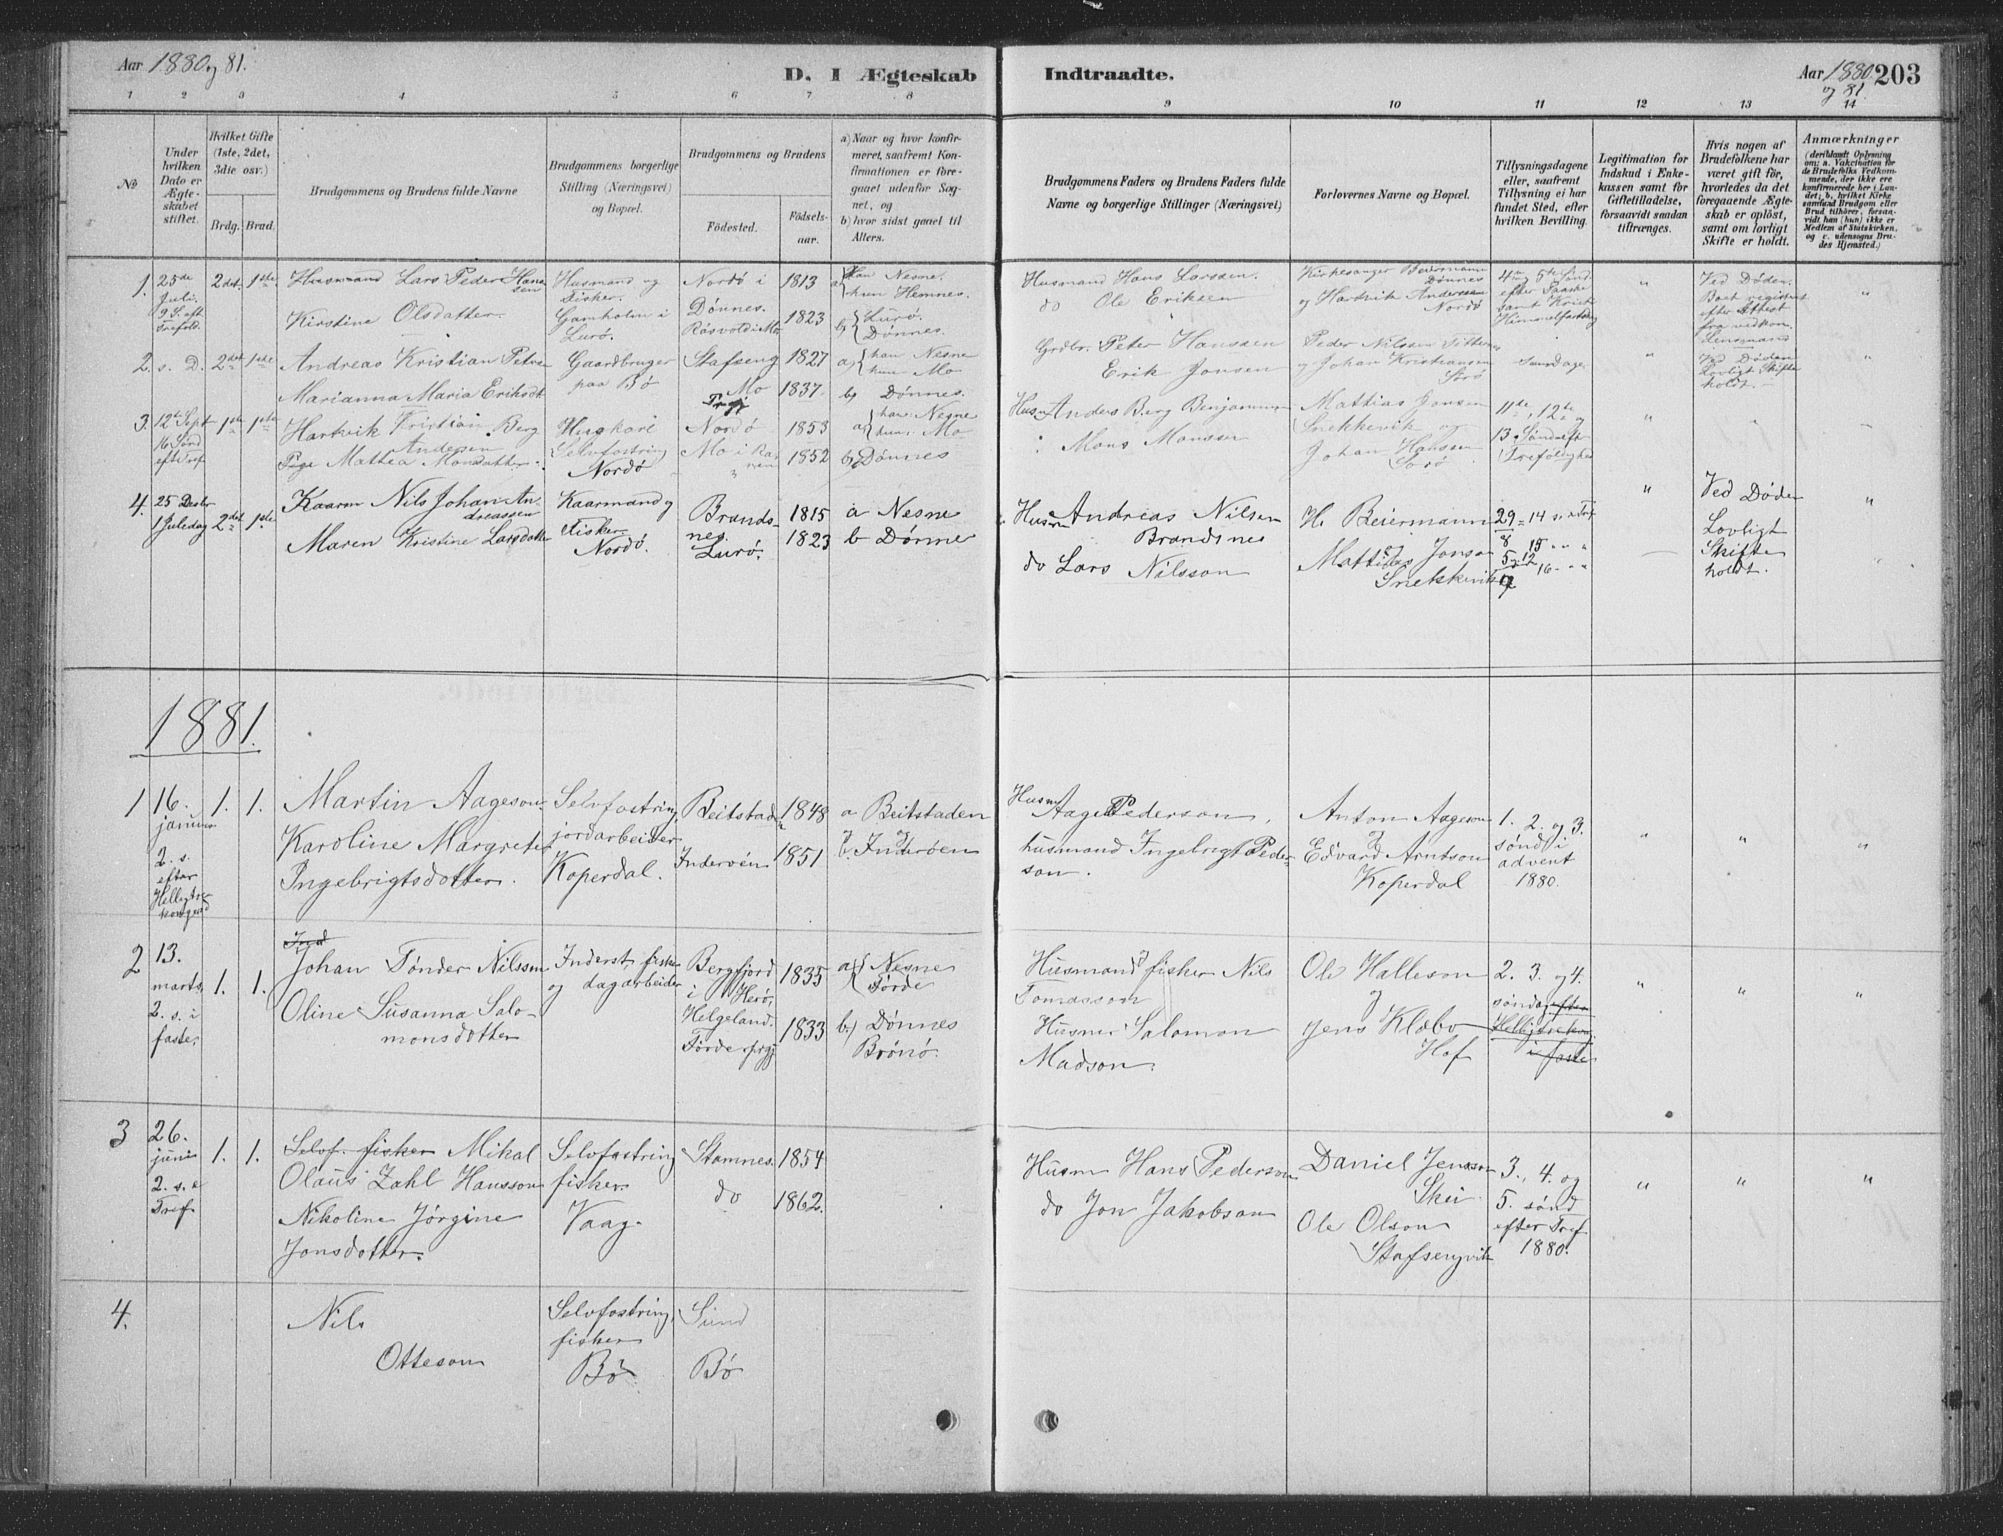 Aar 1880 og 81.
D. I Ægteskab
Indtraadte.
Aar 1880 og 81
203
1 2 3 4 5 6 7 8
9 10 11 12 13 14
No
Under hvilken Dato er Ægteskabet stiftet.
Hvilket Gifte (1ste, 2det, 3die osv.)
Brdg. Brud.
Brudgommens og Brudens fulde Navne
Brudgommens borgerlige Stilling (Næringsvei) og Bopæl.
Brudgommens og Brudens
Fødested.
Fødselsaar.
a) Naar og hvor konfirmeret, saafremt Konfirmationen er foregaaet udenfor Sognet, og
b) hvor sidst gaaet til Alters.
Brudgommens Faders og Brudens Faders fulde Navne og borgerlige Stillinger (Næringsvei)
Forlovernes Navne og Bopæl.
Tillysningsdagene eller, saafremt Tillysning ei har fundet Sted, efter hvilken Bevilling.
Legitimation for Indskud i Enkekassen samt for Giftetilladelse, forsaavidt saadan tiltrænges.
Hvis nogen af Brudefolkene har været gift før, hvorledes da det foregaaende Ægteskab er opløst, samt om lovligt Skifte er holdt.
Anmærkninger
(deriblandt Oplysning om: a. Vakcination for de Brudefolks Vedkommende, der ikke ere konfirmerede her i Landet; b. hvilket Kirkesamfund Brudgom eller Brud tilhører, forsaavidt han (hun) ikke er Medlem af Statskirken, og c. udensogns Brudes Hjemsted.)
1. 25de Juli. 9 S. eft Trefold. 2det 1ste
Husmand Lars Peder Hanssen
Kirstine Olsdatter.
Husmand og Fisker. Gamholm i Lurø.
Nordø i Dønnes. 1813
Røsvold i Mo 1823
a) han Nesne. hun Hemnes.
b) Lurø. Dønnes.
Husmand Hans Larssen.
do Ole Eriksen
Kirkesanger Beiermann Dønnes
og Hartvik Anderssen Nordø
4de og 5te Sønd efter Paaske samt Kristi Himmelfartsdag
"
Ved Døden.
efter Attest fra vedkom. Lensmand
"
2. s. D. 2det 1ste
Andreas Kristian Peters
Marianna Maria Eriksdt
Gaardbruger paa Bø
Stafseng 1827
Mo 1837
a) han Nesne hun Mo
b) Dønnes.
Grdbr. Peter Hanssen
Erik Jonsen
Peder Nilsen
og Johan Kristiansen
"
Ved Døden Lovligt Skifte holdt.
"
3. 12te Sept 16 Sønd efter Tref 1ste 1ste
Hartvik Kristian Berg Andersen
Pige Mathea Monsdatter.
Huskarl Selvfostring Nordø
Nordø 1853
Mo i Ranen 1852
a) han Nesne hun Mo
b) Dønnes
Husm Anders Berg Benjaminsen
Mons Monssen
Mattias Jonsen Snekkevik og
Johan Hanssen
11te, 12te og 13 Sønd eft Trefoldighed
"
4. 25 Decbr 1 Juledag 2det 1ste
Kaarm Nils Johan Andreassen
Maren Kristine Larsdatter
Kaarmand og Fisker Nordø.
Brandsnes. 1815
Lurø. 1823
a Nesne
b Dønne
Husm Andreas Nilsen Brandsnes
do Lars Nilsson
H. Beiermann
og Mattias Jonson Snekkevik
29 14 s. e Tref
8 15 " "
12 16 " "
"
Ved Døden Lovligt Skifte holdt.
"
1881.
1 16. januar 2. s. efter 1. 1.
Martin Aageson
Karoline Margrete Ingebrigtsdotter.
Selvfostring, jordarbeider Koperdal.
Beitstad 1848
Inderøen 1851
a Beitstaden
b. Inderøen
Husm Aage Pederson.
husmand Ingebrigt Pederson.
Anton Aageson
og Edvard Arntson Koperdal
1. 2. og 3. sønd i advent 1880.
"
"
"
2 13. marts. 2. s. i faste. 1. 1.
Johan Tønder Nilsson
Oline Susanna Salomonsdotter
Inderst, fisker og dagarbeider
Bergfjord i Herø, Helgeland. 1835
Førde prgj 1833
a) Nesne Førde
b) Dønnes Brønø.
Husmand og fisker Nils Tomasson
Husm Salomon Madson.
Ole Halleson
og Jens Klæbo Hof
2. 3. og 4. søndag efter Helligtrekong i faste
"
"
"
3 26. juni 2. s. e Tref 1. 1.
Selvf. fisker Mikal Olaus Zahl Hansson
Nikoline Jørgine Jonsdotter.
Selvfostring fisker Vaag.
Stamnes. 1854
do 1862.
Husm Hans Pederson
do Jon Jakobson
Daniel Jensson Skei.
Ole Olson Stafsengvik
3., 4. og 5. sønd efter Tref 1880.
"
"
"
4.
Nils Otteson
Selvfostring, fisker Bø
Sund
Bø